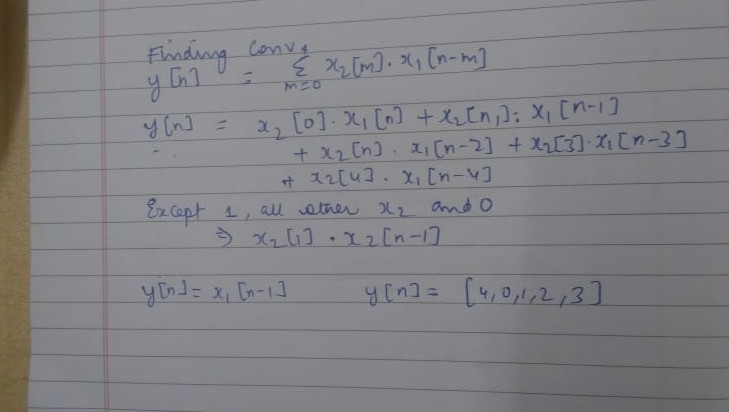 Finding Conv
4
y[n] = Σ x₂[m]. x₁[n-m]
m=0
y[n] = x₂[0]. x₁[n] + x₂[n,]. x₁[n-1]
+ x₂[n]. x₁[n-2] + x₂[3]. x₁[n-3]
+ x₂[4]. x₁[n-4]
Except 1, all other x₂ and 0
⇒ x₂[1] . x₂[n-1]
y[n] = x₁[n-1] y[n] = [4,0,1,2,3]